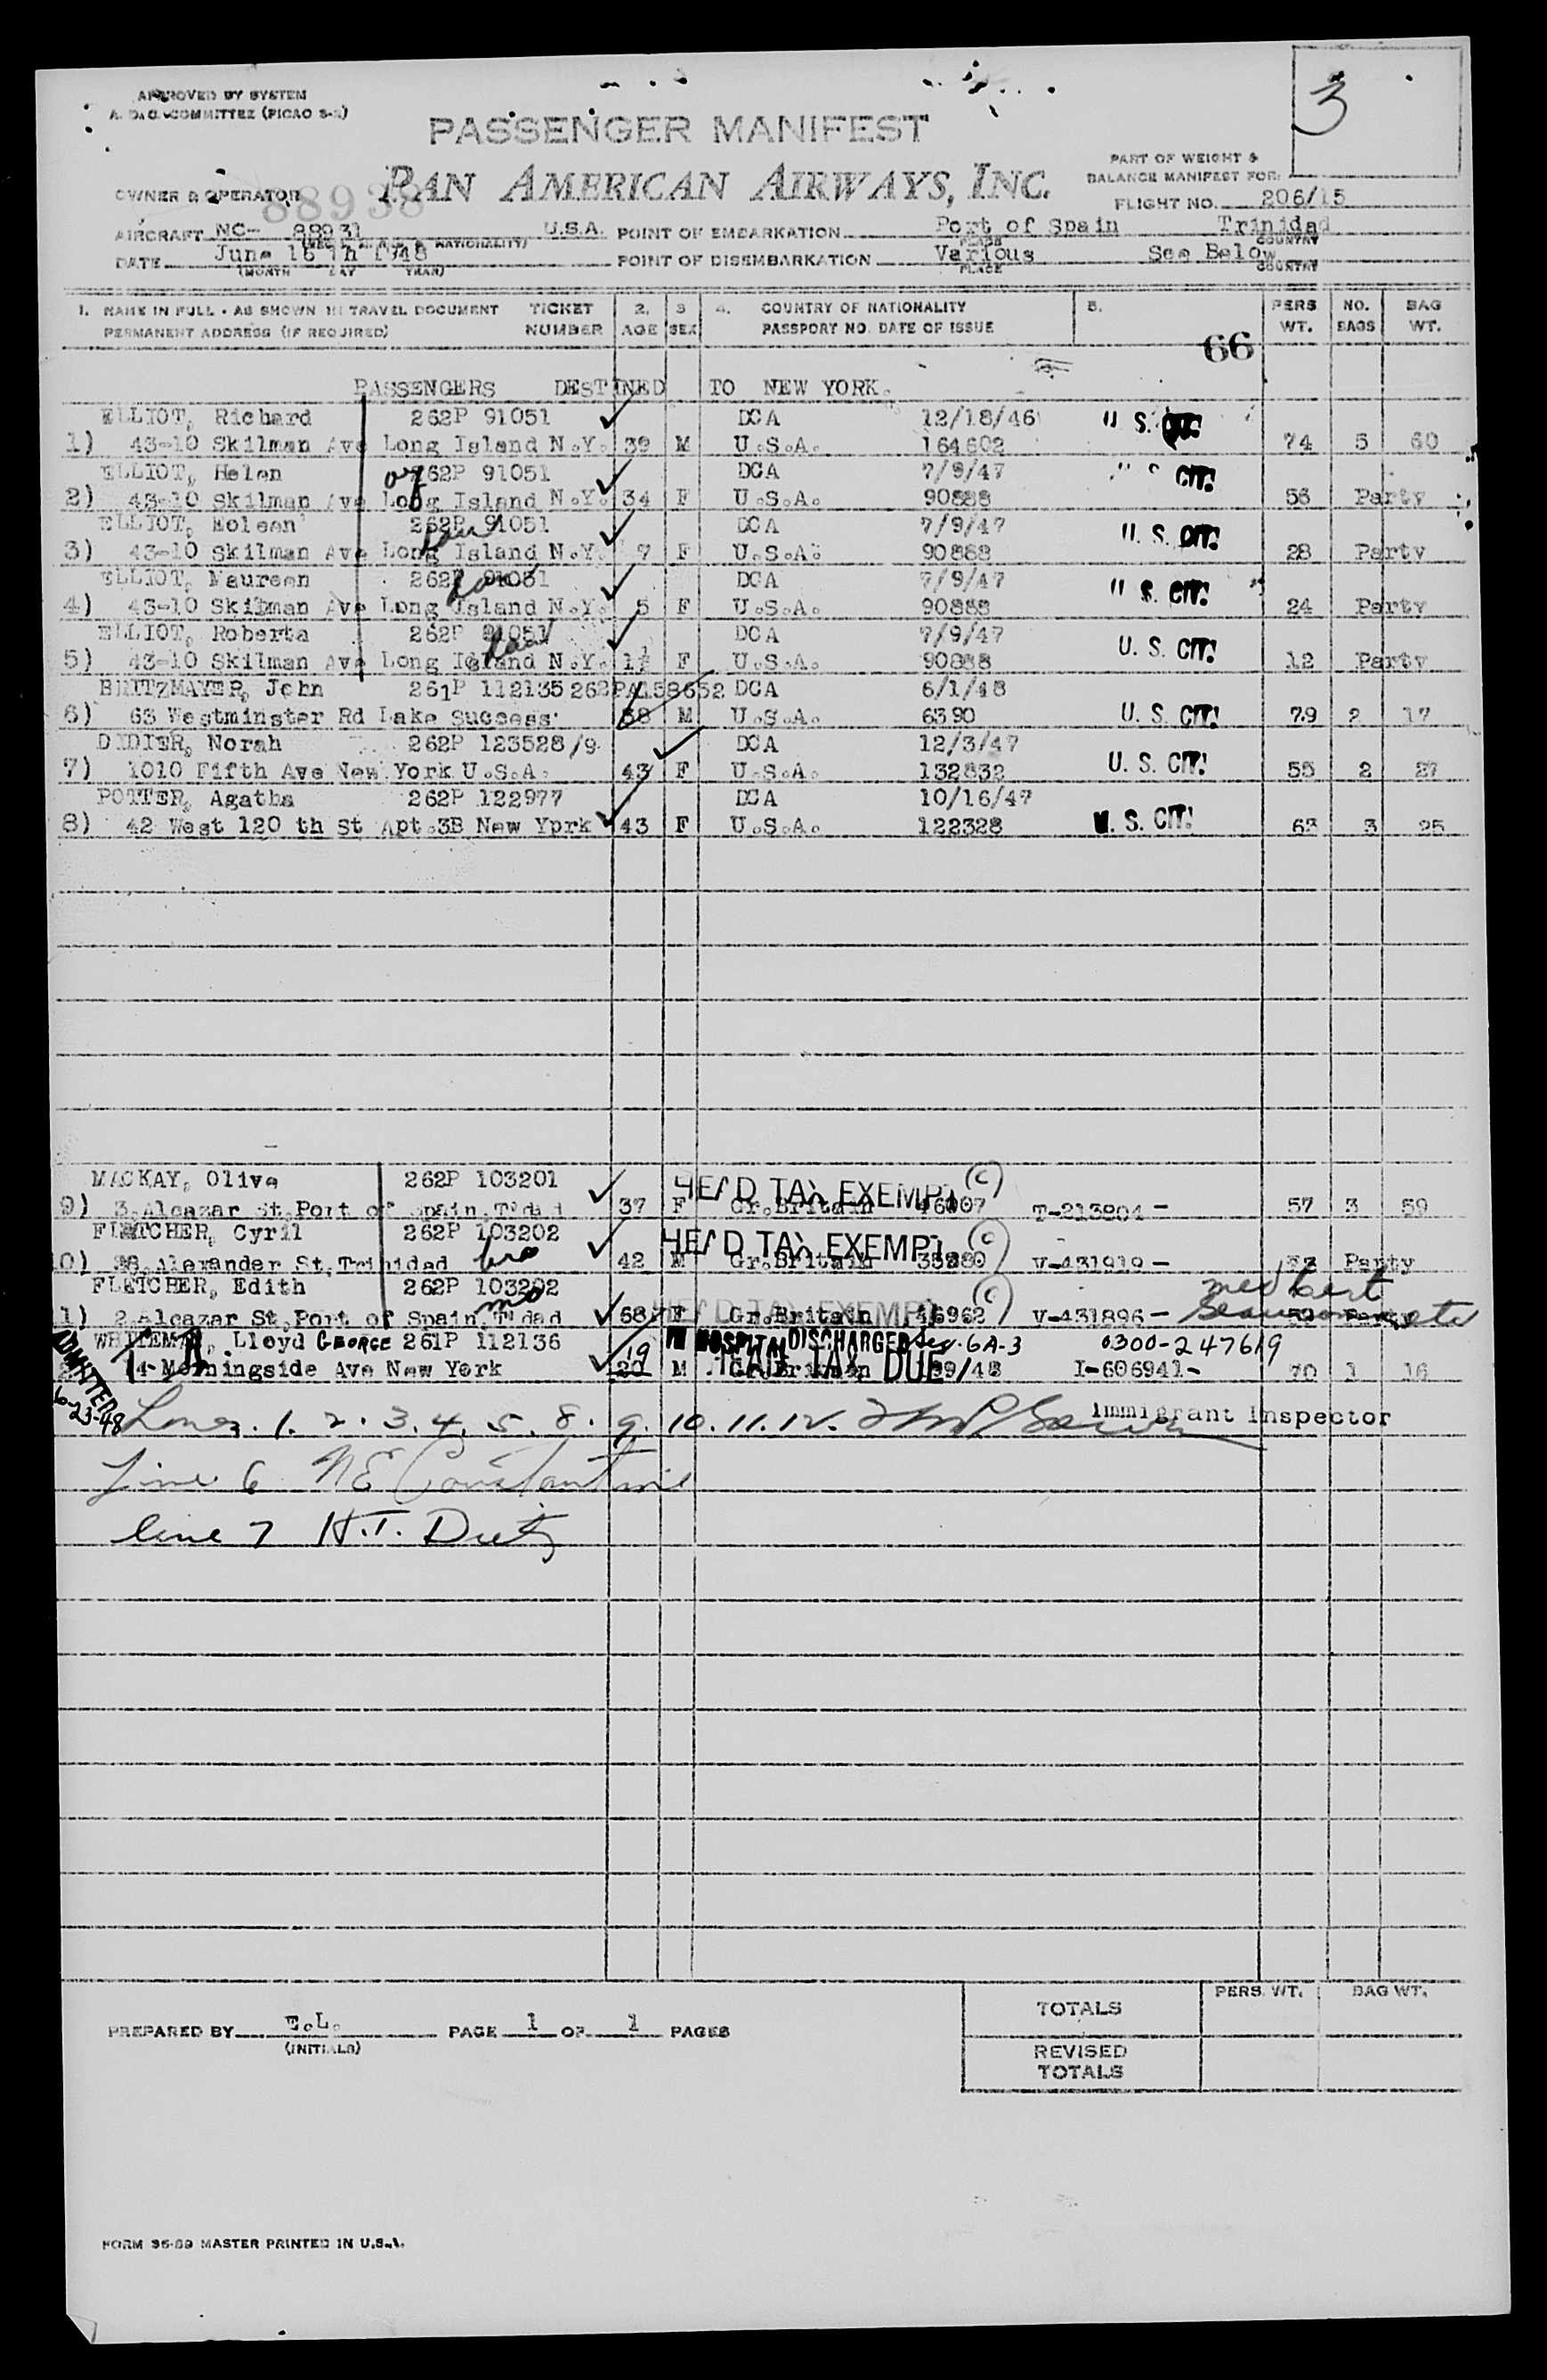 APPROVED BY SYSTEM
A. D. C. COMMITTEE (PICAO S-2)
3
PASSENGER MANIFEST
PAN AMERICAN AIRWAYS, INC.
PART OF WEIGHT &
BALANCE MANIFEST FOR:
OWNER & OPERATOR 88938
FLIGHT NO. 206/15
AIRCRAFT NC- 88931 U.S.A. POINT OF EMBARKATION Port of Spain Trinidad
NATIONALITY) PLACE COUNTRY
DATE June 16 Th 1948 POINT OF DISEMBARKATION Various See Below
(MONTH DAY YEAR) PLACE COUNTRY
1. NAME IN FULL - AS SHOWN IN TRAVEL DOCUMENT TICKET 2. 3 4. COUNTRY OF NATIONALITY 5. PERS NO. BAG
PERMANENT ADDRESS (IF REQUIRED) NUMBER AGE SEX PASSPORT NO. DATE OF ISSUE WT. BAGS WT.
66
PASSENGERS DESTINED TO NEW YORK.
ELLIOT, Richard 262P 91051 DCA 12/18/46 U. S.
1) 43-10 Skilman Ave Long Island N.Y. 39 M U.S.A. 164602 74 5 60
ELLIOT, Helen 262P 91051 DCA 7/9/47 CIT!
2) 43-10 Skilman Ave Long Island N.Y. 34 F U.S.A. 90888 56 Party
ELLIOT, 262P 91051 DCA 7/9/47 U. S. CIT!
3) 43-10 Skilman Ave Long Island N.Y. 7 F U.S.A. 90888 28 Party
ELLIOT, Maureen 262P 91051 DCA 7/9/47 U. S. CIT!
4) 43-10 Skilman Ave Long Island N.Y. 5 F U.S.A. 90888 24 Party
ELLIOT, Roberta 262P 91051 DCA 7/9/47 U. S. CIT!
5) 43-10 Skilman Ave Long Island N.Y. F U.S.A. 90888 12 Party
BRITZMAYER, John 261P 112135 262PA158652 DCA 6/1/48
6) 63 Westminster Rd Lake Success 58 M U.S.A. 6390 U. S. CIT! 79 2 17
DIDIER, Norah 262P 123528/9 DCA 12/3/47
7) 1010 Fifth Ave New York U.S.A. 43 F U.S.A. 132832 U. S. CIT! 55 2 27
POTTER, Agatha 262P 122977 DCA 10/16/47
8) 42 West 120 th St Apt.3B New Yprk 43 F U.S.A. 122328 U. S. CIT! 63 3 25
MACKAY, Olive 262P 103201 HEAD TAX EXEMPT (c)
9) 3,Alcazar St,Port of Spain,T'dad 37 F Gr.Britain 46007 T-213804- 57 3 59
FLETCHER, Cyril 262P 103202 HEAD TAX EXEMPT (c)
10) 28,Alexander St,Trinidad bro 42 M Gr.Britain V-431919- Party
FLETCHER, Edith 262P 103202 HEAD TAX EXEMPT (c)
11) 2 Alcazar St,Port of Spain,T'dad mo 68 F Gr.Britain 46962 V-431896-
, Lloyd GEORGE 261P 112136 IN HOSPITAL DISCHARGED Sec. 6A-3 0300-247619
Morningside Ave New York 20 19 M Gr.Britain HEAD TAX DUE I-606941- 70 1 16
ADMITTED
6-23-48
Lines. 1. 2. 3. 4. 5. 8. 9. 10. 11. 12. Immigrant Inspector
Line 6 N E Constantine
line 7 H.T. Dietz
PREPARED BY E.L. PAGE 1 OF 1 PAGES
(INITIALS)
PERS. WT. BAG WT.
TOTALS
REVISED
TOTALS
FORM 96-89 MASTER PRINTED IN U.S.A.